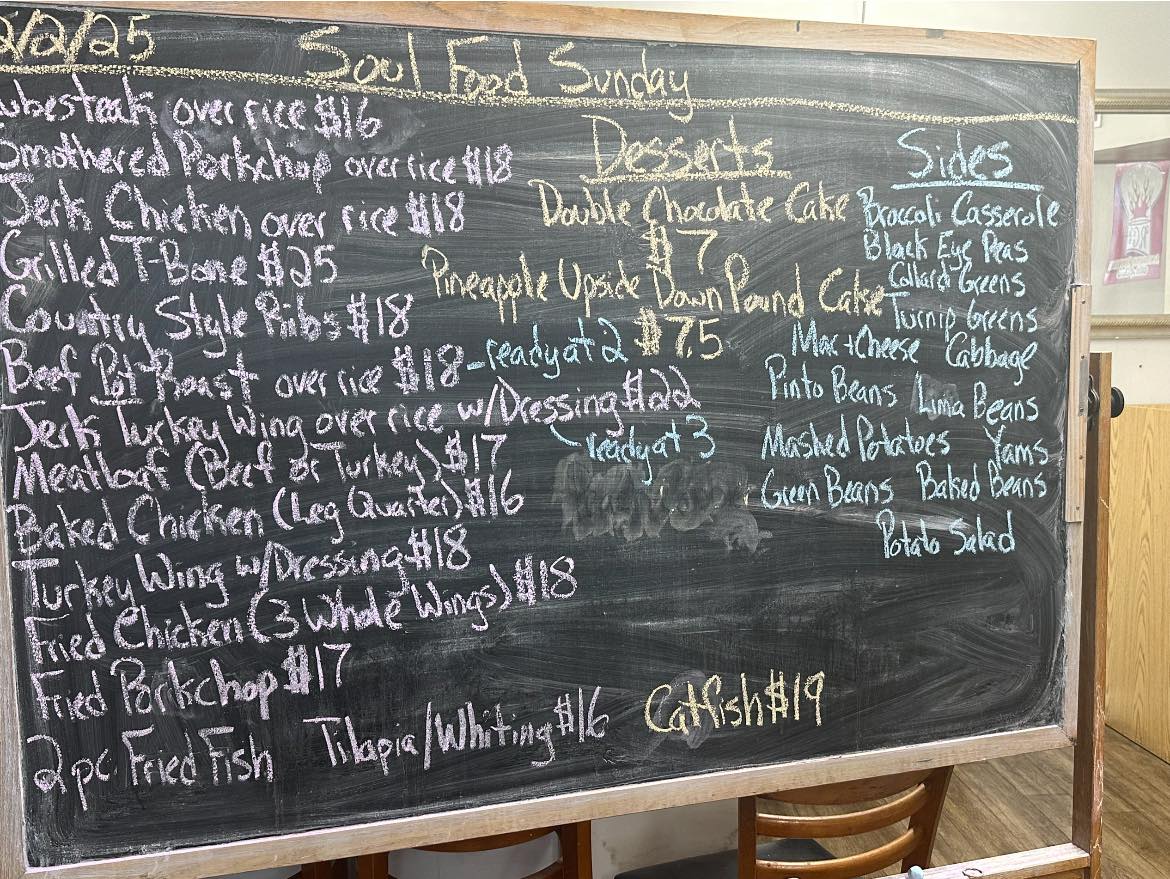 2/2/25 Soul Food Sunday
ubesteak over rice $16
Smothered Porkchop over rice $18
Jerk Chicken over rice $18
Grilled T-Bone $25
Country Style Ribs $18
Beef Pot Roast over rice $18 - ready at 2
Jerk Turkey Wing over rice w/Dressing $22
ready at 3
Meatloaf (Beef or Turkey) $17
Baked Chicken (Leg Quarter) $16
Turkey Wing w/Dressing $18
Fried Chicken (3 Whole Wings) $18
Fried Porkchop $17
2pc. Fried Fish Tilapia/Whiting $16 Catfish $19
Desserts
Double Chocolate Cake
$7
Pineapple Upside Down Pound Cake
$7.5
Sides
Broccoli Casserole
Black Eye Peas
Collard Greens
Turnip Greens
Mac+Cheese Cabbage
Pinto Beans Lima Beans
Mashed Potatoes Yams
Green Beans Baked Beans
Potato Salad